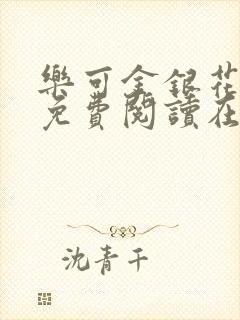 樂可金銀花
免費閱讀在
沈青千